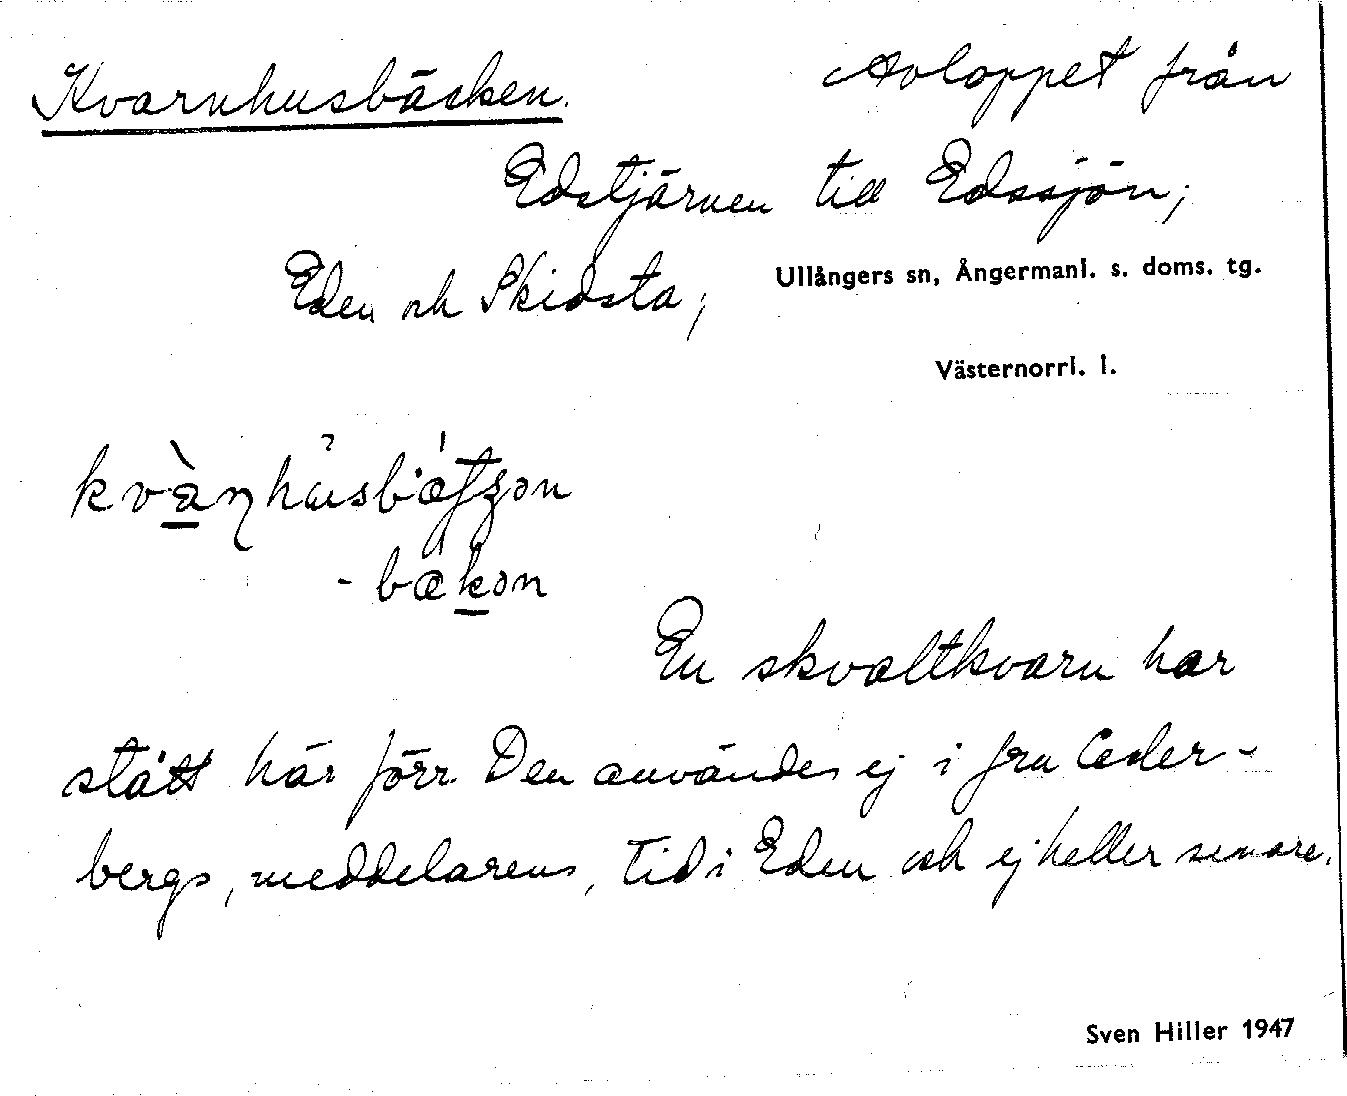 Kvarnhusbäcken. Avloppet från
Edstjärnen till Edssjön;
Eden och Skidsta; Ullångers sn, Ångermanl. s. doms. tg.
Västernorrl. l.
-bækən
En skvaltkvarn har
stått här förr. Den användes ej i fru Ceder-
bergs, meddelarens, tid i Eden och ej heller senare.
Sven Hiller 1947